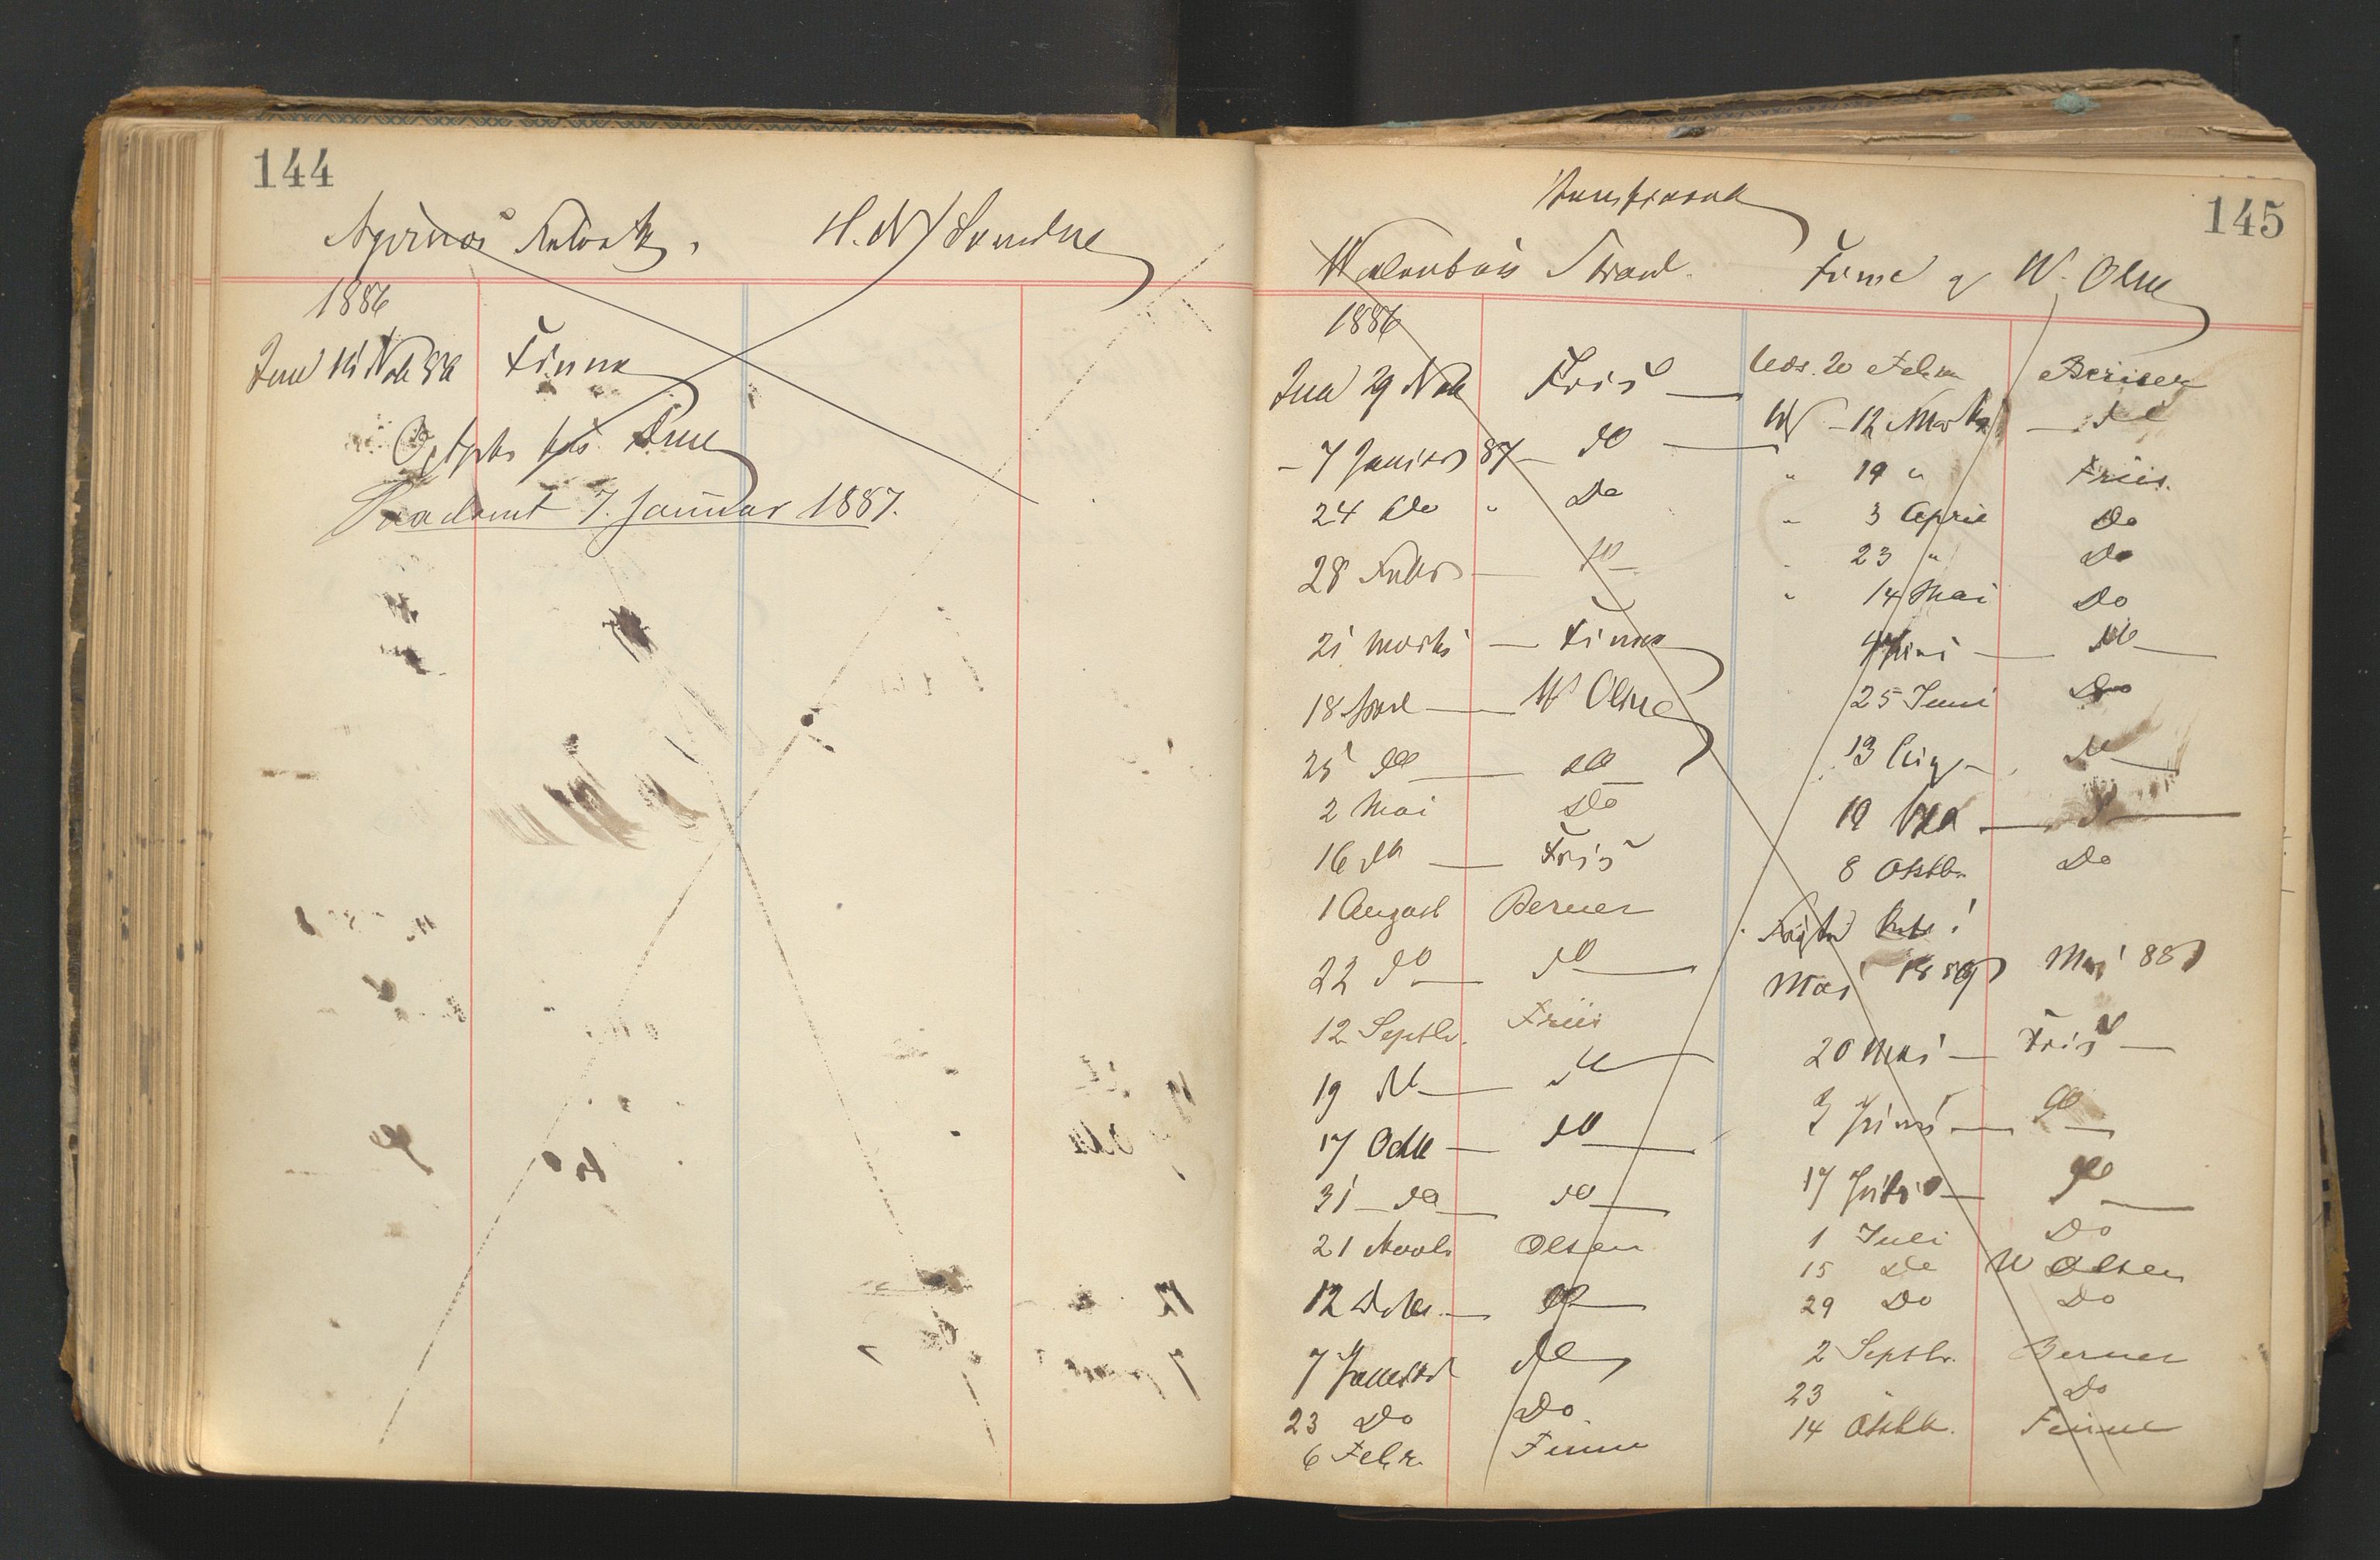 144
H. N. 
1886
14 Nov 86 Finne
Finne
Paadømt 7. Januar 1887.
145
Strand. Finne og W. Olsen
1886
29 Nov Friis
7 Januar 87 do
24 do " Do
28 Febr do
21 Marts Finne
18 April W Olsen
25 do do
2 Mai Do
16 do Friis
1 August Berner
22 do do
12 Septbr. Friis
19 do do
17 Octb do
31 do do
21 Novbr Olsen
12 Decbr. do
7 Januar do
23 Do Do.
6 Febr. Finne
20 Febr Berner
12 Marts do
" 19 " Friis.
" 3 April Do
23 " Do
" 14 Mai Do
4 Juni do
25 Juni Do
13 Aug do
19 do
8 Oktbr Do
Mai 1889 Mai 88
20 Mai Friis
3 Juni do
17 Juni do
1 Juli Do
15 Do W Olsen
29 Do Do
2 Septbr. Berner
23 Do
14 Oktbr. Finne